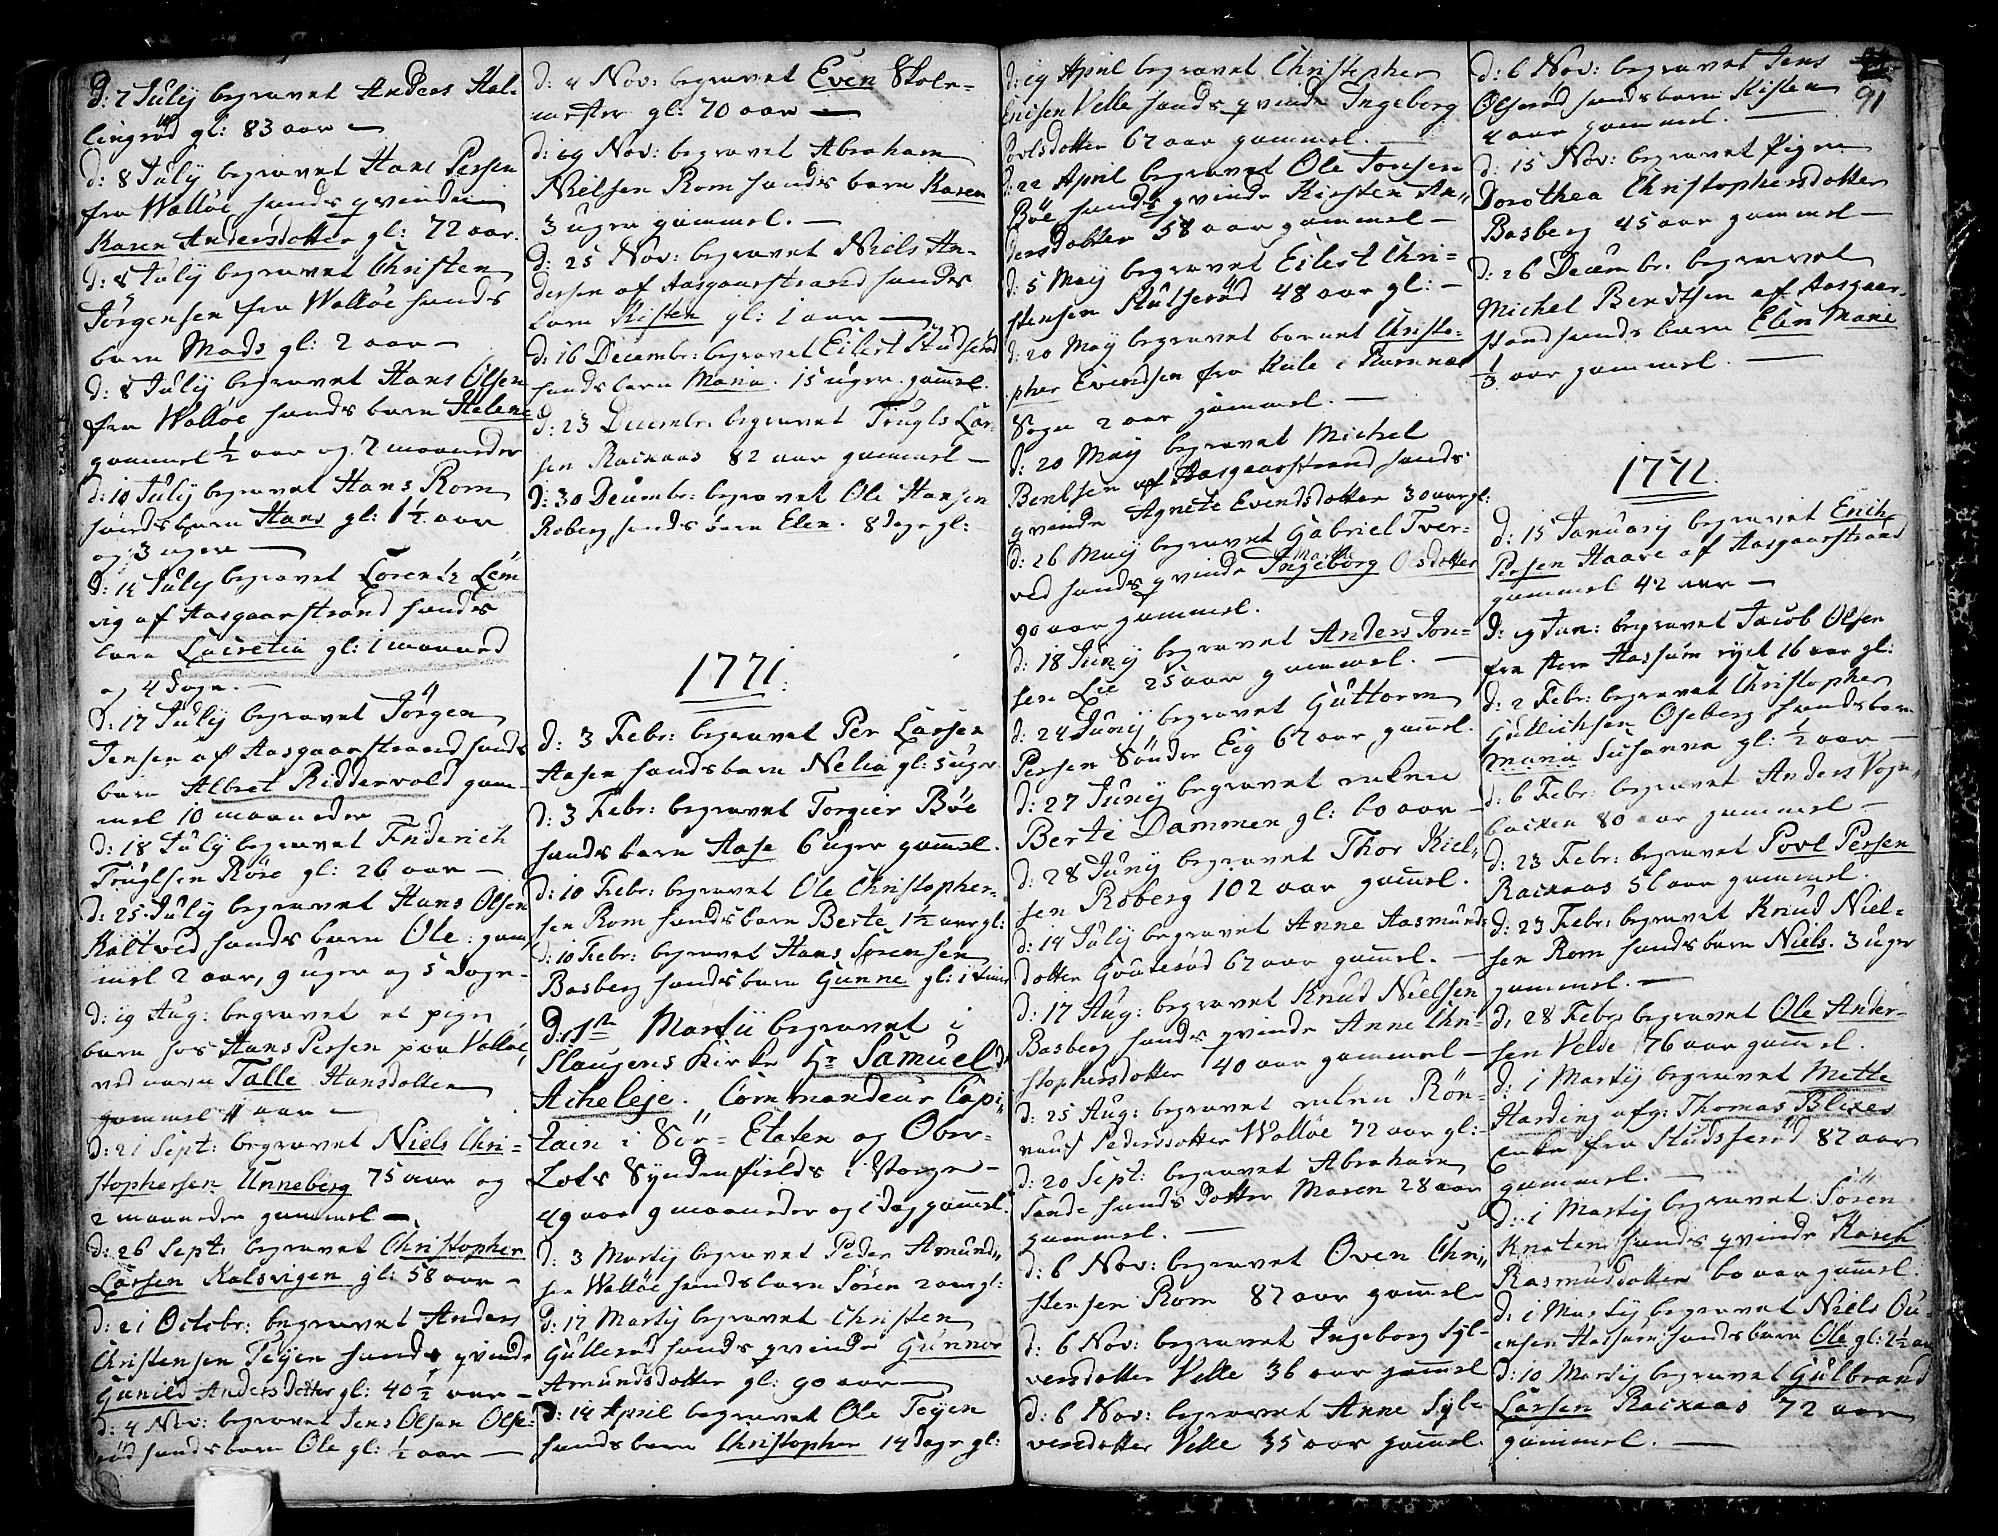 D: 7 July begravet Anders Hal-
lingrød gl: 83 aar —
d: 8 July begravet Hans Persen
fra Walløe hands qvinde
Karen Andersdotter gl: 72 aar.
d: 8 July begravet Christen
Jörgensen fra Walløe hands
barn Mads gl: 2 aar —
d: 8 July begravet Hans Olsen
fra Walløe hands barn Helene
gammel ½ aar og 7 maaneder
d: 10 July begravet Hans Rom
hands barn Hans gl: 1½ aar
og 3 uger —
d: 14 July begravet Lorentz Lem
vig af Aasgaarstrand hands
barn Lucretia gl: 1 maaned
og 4 Dage. —
d: 17 July begravet Jörgen
Jensen af Aasgaarstrand hands
barn Albret Riddervold gam-
mel 10 maaneder
d: 18 July begravet Friderich
Truglsen Röre gl: 26 aar —
d: 25 July begravet Hans Olsen
Kaltved hands barn Ole: gam
mel 2 aar, 9 uger og 5 Dage-
d: 19 Aug: begravet et pige
barn hos Hans Persen paa Valløe
ved navn Talle Hansdotter
gammel 4 aar —
d: 21 Sept: begravet Niels Chri-
stophersen Unneberg 75 aar og
2 maaneder gammel —
d: 26 Sept: begravet Christopher
Larsen Kalsvigen gl: 58 aar —
d: 21 Octobr: begravet Anders
Christensen Teyen hands qvinde
Gunild Andersdotter gl: 40½ aar —
d: 4 Nov: begravet Jens Olsen Olse-
rød hands barn Ole gl: ½ aar —
d: 4 Nov: begravet Even Skole-
mester gl: 70 aar —
d: 19 Nov: begravet Abraham
Nielsen Rom hands barn Karen
3 uger gammel. —
d: 25 Nov: begravet Niels An-
dersen af Aasgaarstrand hands
barn Kisten gl: 1 aar —
d: 16 Decembr: begravet Eilert Studserød
hands barn Maria. 15 uger gam̅el.
d: 23 Decembr: begravet Trugls Lar-
sen Backaas 82 aar gammel —
d: 30 Decembr: begravet Ole Hansen
Roberg hands barn Elen. 8 Dage gl:
1771.
d: 3 Febr: begravet Per Larsen
Aasen hands barn Nelia gl: 5 uger
d: 3 Febr: begravet Torgier Böe
hands barn Aase 6 uger gam̅el.
d: 10 Febr: begravet Ole Christopher-
sen Rom hands barn Berte 1½ aar gl:
d: 10 Febr: begravet Hans Sörensen
Basberg hands barn Gunne gl: 1 time
D: 1ste Martii begravet i
Slaugens Kirke Hr Samuel de
Acheleje. Commandeur Capi-
tain i Söe-Etaten og Ober-
Lots Syndenfields i Norge —
49 aar 9 maaneder og 1 Dag gam̅el.
d: 3 Martij begravet Peder Amund-
sen Walløe hands barn Sören 2 aar gl:
d: 12 Martij begravet Christen
Gullerød hands qvinde Gunnor
Amundsdotter gl: 90 aar —
d: 14 April begravet Ole Teyen
hands barn Christopher 14 Dage gl:
d: 19 April begravet Christopher
Erichsen Velle hands qvinde Ingeborg
Povlsdotter 67 aar gammel. —
d: 22 April begravet Ole Jonsen
Böe hands qvinde Kirsten An-
dersdotter 58 aar gammel —
d: 5 May begravet Eilert Chri-
stensen Stutserød 48 aar gl: —
d: 20 May begravet barnet Christo-
pher Evendsen fra Kule i Ramnæs
Sogn 2 aar gammel. —
d: 20 May begravet Michel
Bentsen af Aasgaarstrand hands
qvinde Agnete Evendsdotter 30 aar gl:
d: 26 May begravet Gabriel Tver-
ved hands qvinde Ingeborg Marthe Olsdotter
90 aar gammel.
d: 18 Junij begravet Anders Jon-
sen Lie 25 aar gammel. —
d: 24 Junij begravet Guttorm
Persen Sönder Eig 67 aar gam̅el.
d: 27 Junij begravet enken
Berte Dammen gl: 60 aar —
d: 28 Junij begravet Thor Kiel-
sen Roberg 102 aar gam̅el.
d: 14 July begravet Anne Aasmunds
dotter Gouterød 67 aar gam̅el. —
d: 17 Aug: begravet Knud Nielsen
Basberg hands qvinde Anne Chri-
stophersdotter 40 aar gammel —
d: 25 Aug: begravet enken Rön-
naug Pedersdotter Walløe 72 aar gl:
d: 20 Sept: begravet Abraham
Sande hands Dotter Maren 28 aar
gammel. —
d: 6 Nov: begravet Oven Chri-
stensen Rom 87 aar gam̅el
d: 6 Nov: begravet Ingeborg Syl-
versdotter Velle 36 aar gam̅el
d: 6 Nov: begravet Anne Syl-
versdotter Velle 35 aar gam̅el.
91
d: 6 Nov: begravet Jens
Olserød hands barn Kisten
4 aar gammel. —
d: 15 Nov: begravet pigen
Dorothea Christophersdotter
Basberg 45 aar gammel —
d: 26 Decembr: begravet
Michel Bendtsen af Aasgaar-
strand hands barn Elen Marie
⅓ aar gammel. —
1772.
d: 15 January begravet Erich
Persen Haave af Aasgaarstrand
gammel 42 aar —
d: 19 Jan: begravet Jacob Olsen
fra store Aassum ryet 16 aar gl:
d: 2 Febr: begravet Christopher
Gullichsen Oseberg hands barn
Maria Susanna gl: ½ aar —
d: 6 Febr: begravet Anders Vogn-
backen 80 aar gammel —
d: 23 Febr: begravet Povl Persen
Backaas 51 aar gammel.
d: 23 Febr: begravet Knud Niel-
sen Rom hands barn Niels. 3 uger
gammel. —
d: 28 Febr: begravet Ole Ander-
sen Velde 76 aar gam̅el.
d: 1 Martij begravet Mette
Harding afg: Thomas Blixes
Enke fra Studsserød 87 aar
gammel. —
d: 1 Martij begravet Sören
Knaten hands qvinde Karen
Rasmusdotter 60 aar gam̅el.
d: 1 Martij begravet Niels Ou-
ensen Aassum hands barn Ole gl: 1½ aar
d: 10 Martij begravet Gulbrand
Larsen Backaas 72 aar
gammel. —